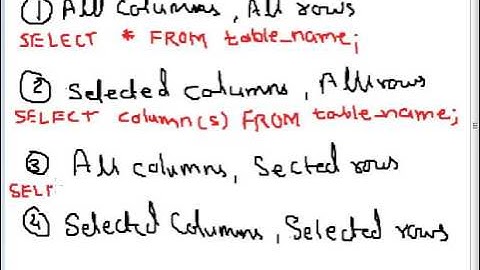 ① All Columns, All rows
SELECT * FROM table_name;
② Selected columns, All rows
SELECT column(s) FROM table_name;
③ All columns, Sected rows
SELE
④ Selected Columns, Selected rows